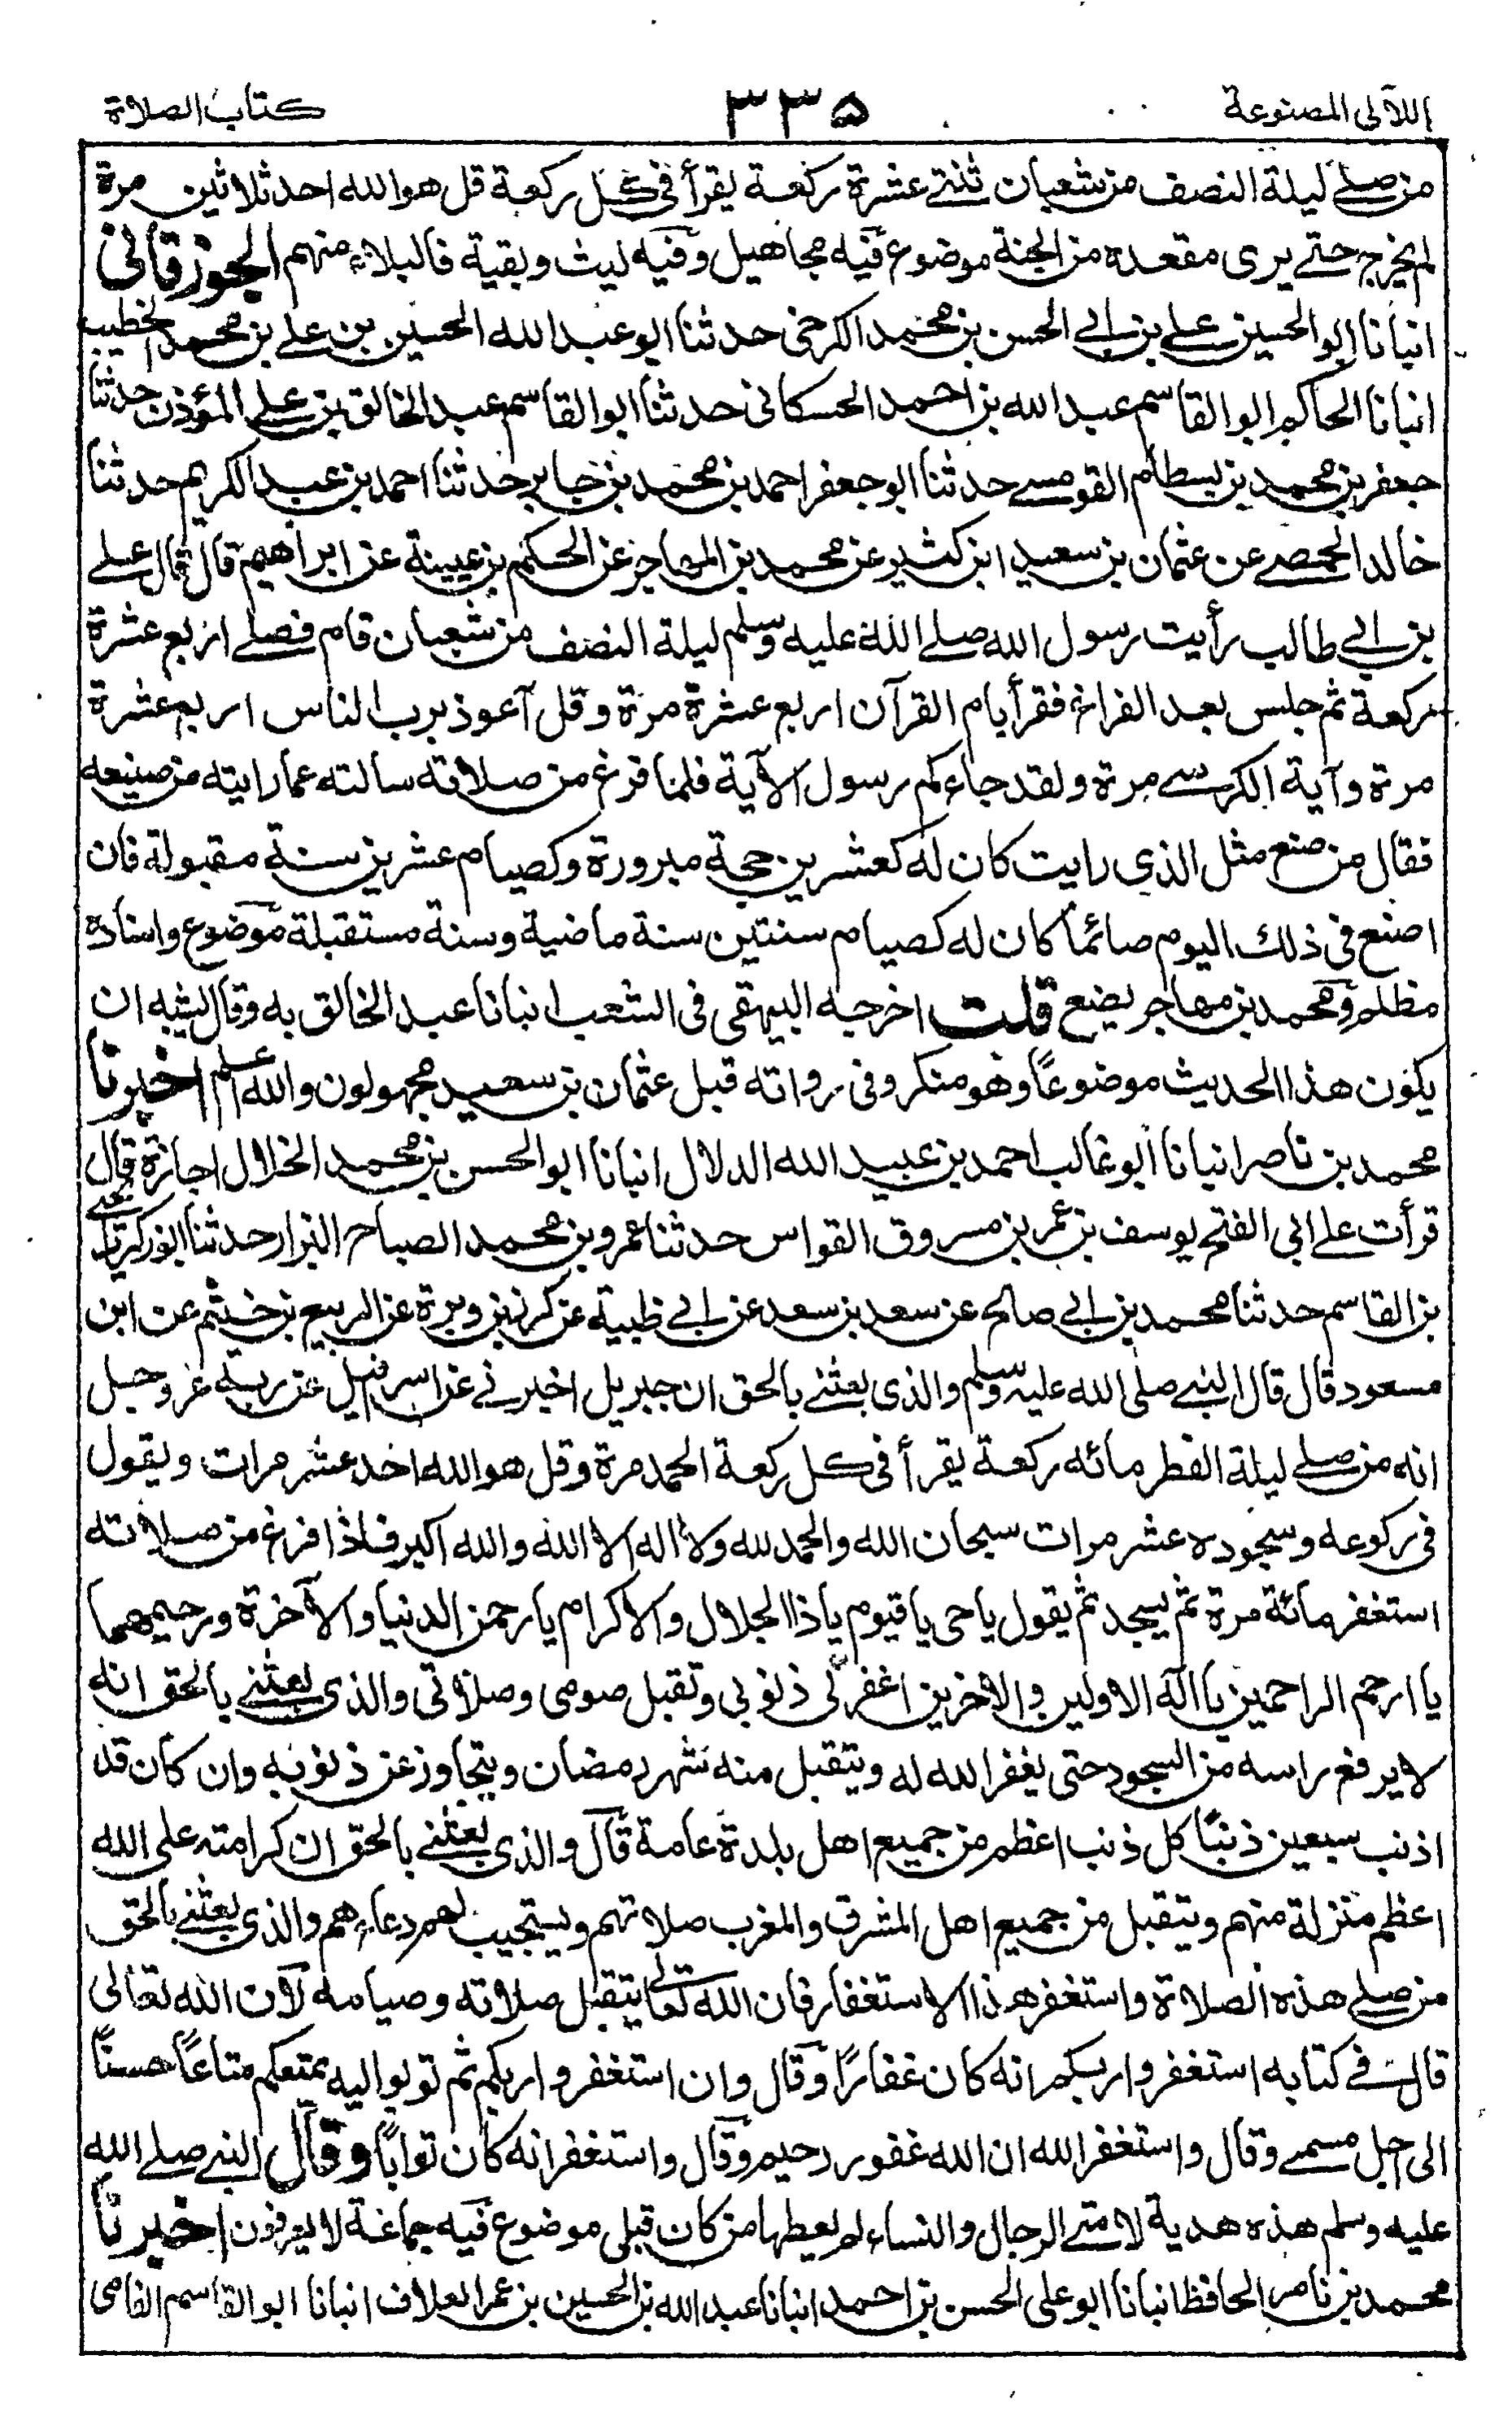 اللآلى المصنوعة ٣٣٥ كتاب الصلاة
من صلى ليلة النصف من شعبان ثنتى عشرة ركعة يقرأ فى كل ركعة قل هو الله احد ثلاثين مرة
لم يخرج حتى يرى مقعده من الجنة موضوع فيه مجاهيل وفيه ليث وبقية فالبلاء منهم الجوزقانى
انبانا ابو الحسين على بن ابى الحسن بن محمد الكرخى حدثنا ابو عبد الله الحسين بن على بن محمد الخطيب
انبانا الحاكم ابو القاسم عبد الله بن احمد الحسكانى حدثنا ابو القاسم عبد الخالق بن على المؤذن حدثنا
جعفر بن محمد بن بسطام القومسى حدثنا ابو جعفر احمد بن محمد بن جابر حدثنا احمد بن عبد الكريم حدثنا
خالد الحمصى عن عثمان بن سعيد ابن كثير عن محمد بن المهاجر عن الحكم بن عيينة عن ابراهيم قال قال على
بن ابى طالب رأيت رسول الله صلى الله عليه وسلم ليلة النصف من شعبان قام فصلى اربع عشرة
ركعة ثم جلس بعد الفراغ فقرأ بام القرآن اربع عشرة مرة وقل اعوذ برب الناس اربع عشرة
مرة وآية الكرسى مرة ولقد جاءكم رسول الآية فلما فرغ من صلاته سالته عما رايته من صنيعه
فقال من صنع مثل الذى رايت كان له كعشرين حجة مبرورة وكصيام عشرين سنة مقبولة فان
اصبح فى ذلك اليوم صائما كان له كصيام سنتين سنة ماضية وسنة مستقبلة موضوع واسناده
مظلم ومحمد بن مهاجر يضع قلت اخرجه البيهقى فى الشعب انبانا عبد الخالق به وقال يشبه ان
يكون هذا الحديث موضوعًا وهو منكر وفى رواته قبل عثمان بن سعيد مجهولون والله اعلم اخبرنا
محمد بن ناصر انبانا ابو غالب احمد بن عبيد الله الدلال انبانا ابو الحسن بن محمد الخلال اجازة قال
قرأت على ابى الفتح يوسف بن عمر بن مسروق القواس حدثنا عمرو بن محمد الصباح البزار حدثنا ابو زكريا يحيى
بن القاسم حدثنا محمد بن ابى صالح عن سعد بن سعد عن ابى ظبية عن كرز بن وبرة عن الربيع بن خيثم عن ابن
مسعود قال قال النبى صلى الله عليه وسلم والذى بعثنى بالحق ان جبريل اخبرنى عن اسرافيل عن ربه عز وجل
انه من صلى ليلة الفطر مائه ركعة يقرأ فى كل ركعة الحمد مرة وقل هو الله احد عشر مرات ويقول
فى ركوعه وسجوده عشر مرات سبحان الله والحمد لله ولا اله الا الله والله اكبر فاذا فرغ من صلاته
استغفر مائة مرة ثم يسجد ثم يقول ياحى ياقيوم ياذا الجلال والاكرام يارحمن الدنيا والآخرة ورحيمهما
يا ارحم الراحمين يا اله الاولين والاخرين اغفر لى ذنوبى وتقبل صومى وصلاتى والذى بعثنى بالحق انه
لا يرفع راسه من السجود حتى يغفر الله له ويتقبل منه شهر رمضان ويتجاوز عن ذنوبه وان كان قد
اذنب سبعين ذنبًا كل ذنب اعظم من جميع اهل بلدة عامة قال والذى بعثنى بالحق ان كرامته على الله
اعظم منزلة منهم ويتقبل من جميع اهل المشرق والمغرب صلاتهم ويستجيب لهم دعاءهم والذى بعثنى بالحق
من صلى هذه الصلاة واستغفر هذا الاستغفار فان الله تعالى يتقبل صلاته وصيامه لان الله تعالى
قال فى كتابه استغفروا ربكم انه كان غفارًا وقال وان استغفروا ربكم ثم توبوا اليه يمتعكم متاعًا حسنًا
الى اجل مسمى وقال واستغفر الله ان الله غفور رحيم وقال واستغفر انه كان توابًا وقال النبى صلى الله
عليه وسلم هذه هدية لامتى الرجال والنساء لم يعطها من كان قبلى موضوع فيه جماعة لا يعرفون اخبرنا
محمد بن ناصر الحافظ انبانا ابو على الحسن بن احمد انبانا عبد الله بن الحسين بن عمر العلاف انبانا ابو القاسم القاضى